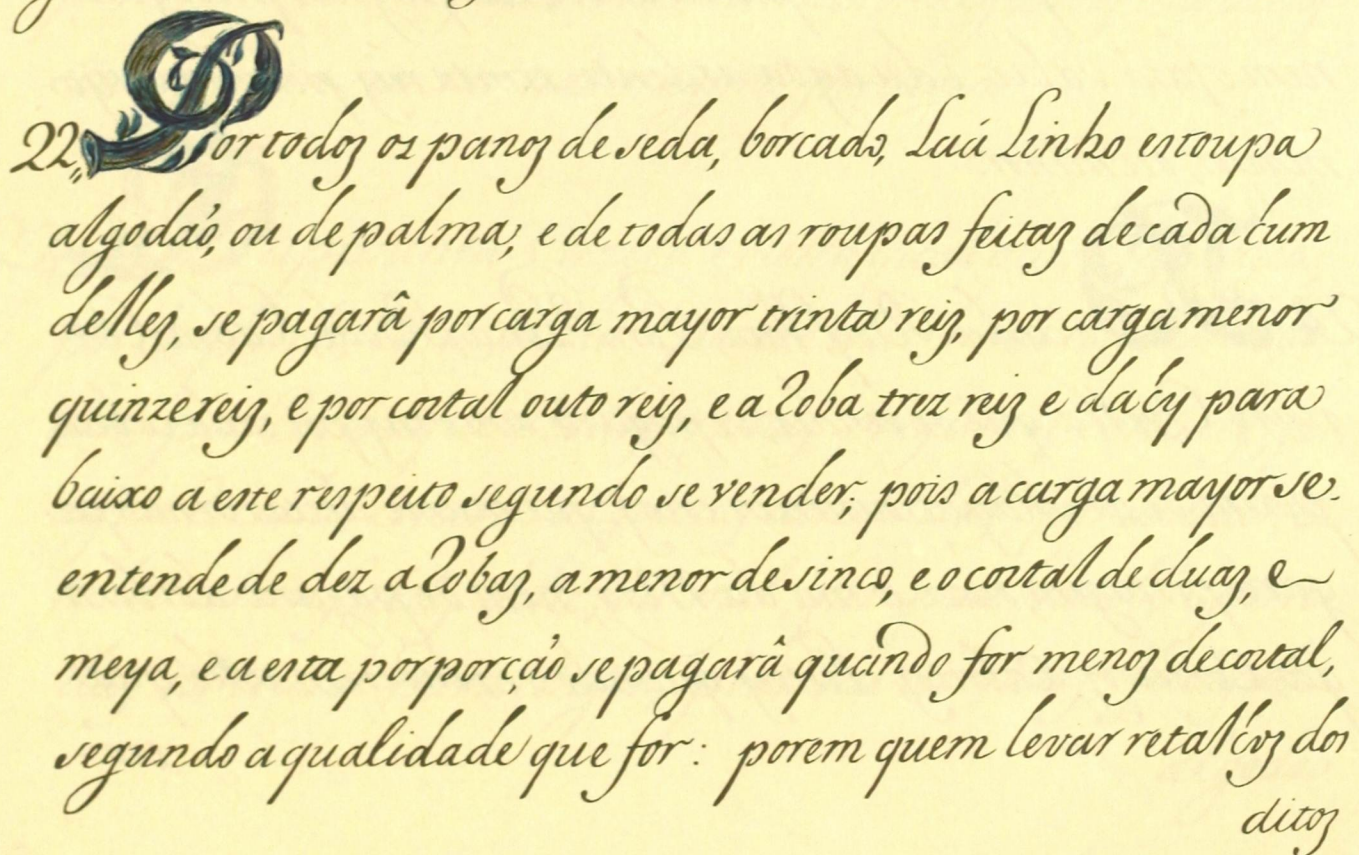 22,, Por todos os panos de seda, borcado, Laá Linho estoupa
algodaó, ou de palma, e de todas as roupas feitas de cada hum
delles, se pagarâ por carga mayor trinta reis, por carga menor
quinze reis, e por costal outo reis, e a Roba trez reis e dahy para
baixo a este respeito segundo se vender; pois a carga mayor se
entende de dez aRobas, a menor de sinco, e o costal de duas, e
meya, e a esta porporçaó se pagarâ quando for menos de costal,
segundo a qualidade que for: porem quem levar retalhos dos
ditos